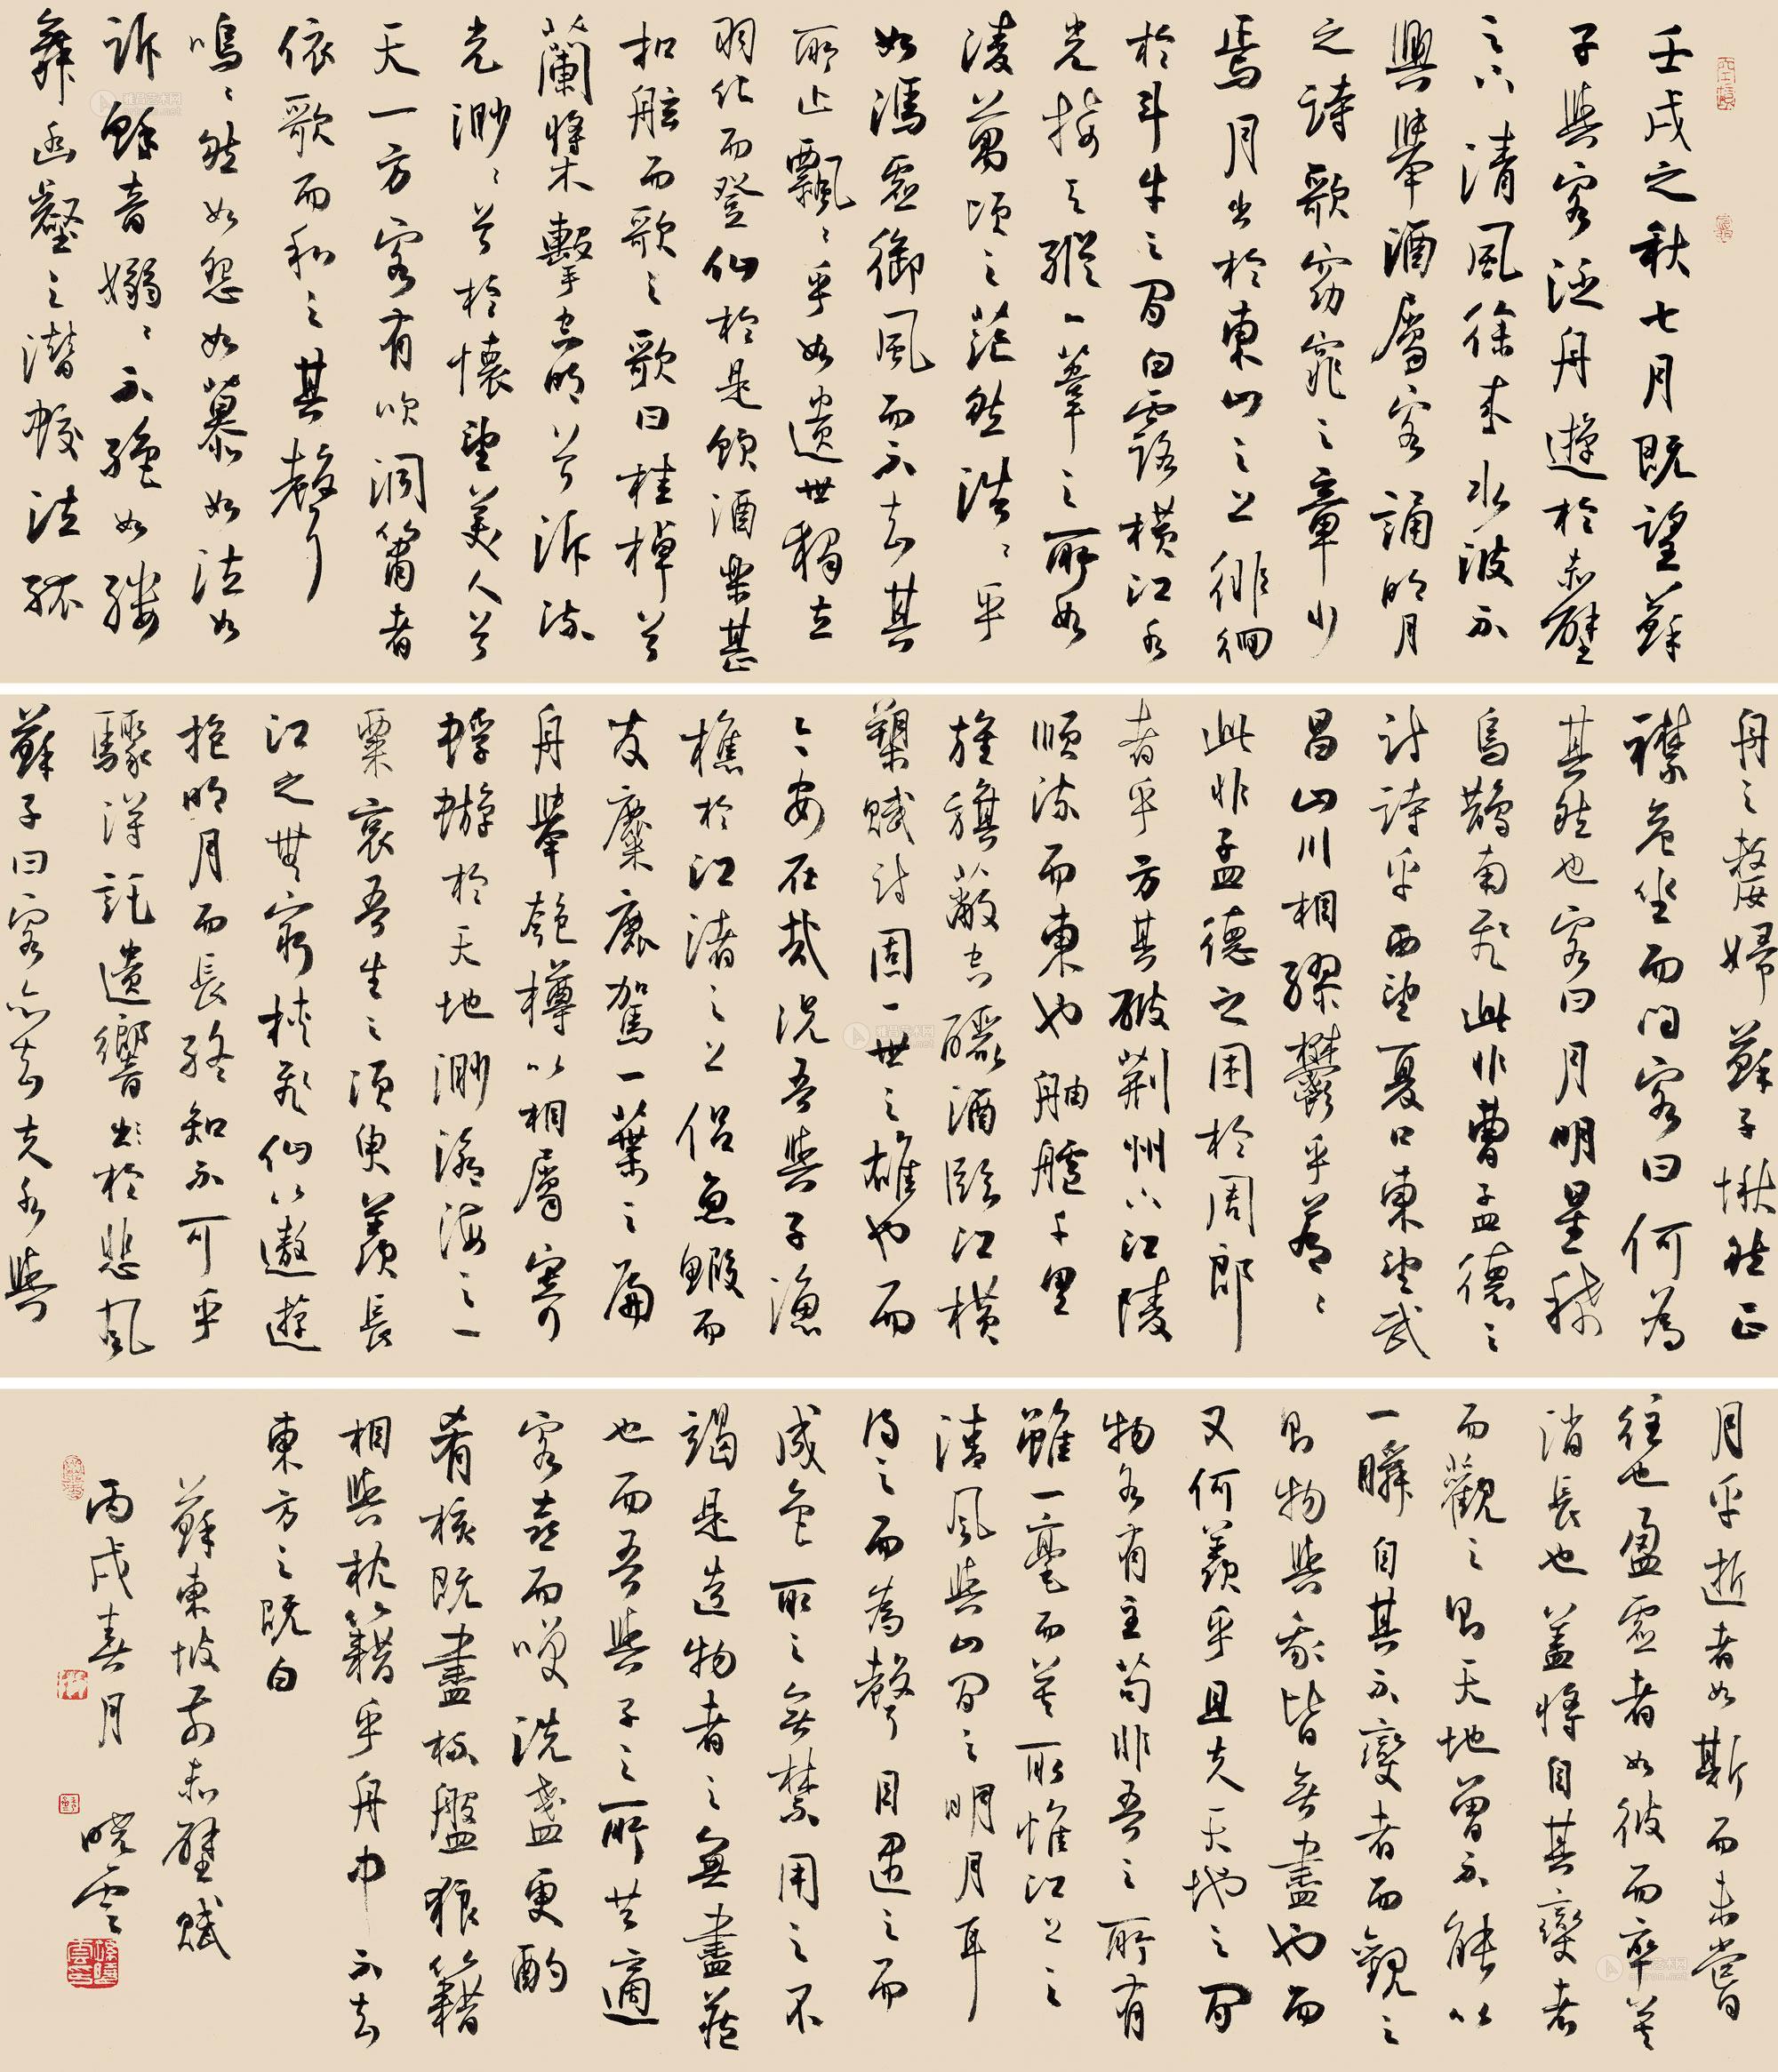 壬戌之秋七月既望蘇
子與客泛舟遊於赤壁
之下清風徐来水波不
興舉酒屬客誦明月
之詩歌窈窕之章少
焉月出於東山之上徘徊
於斗牛之間白露横江水
光接天縱一葦之所如
淩萬頃之茫然浩〻乎
如馮虚御風而不去其
所止飄〻乎如遺世獨立
羽化而登仙於是飲酒樂甚
扣舷而歌之歌曰桂棹兮
蘭槳擊空明兮泝流
光渺〻兮於懷望美人兮
天一方客有吹洞簫者
依歌而和之其聲
嗚〻然如怨如慕如泣如
訴餘音嫋〻不絶如縷
舞幽壑之潛蛟泣孤
舟之嫠婦蘇子愀然正
襟危坐而問客曰何為
其然也客曰月明星稀
烏鵲南飛此非曹孟德之
詩詩乎西望夏口東望武
昌山川相繆鬱乎蒼〻
此非孟德之困於周郎
者乎方其破荆州下江陵
順流而東也舳艫千里
旌旗蔽空釃酒臨江横
槊賦詩固一世之雄也而
今安在哉況吾與子漁
樵於江渚之上侣魚鰕而
友麋鹿駕一葉之扁
舟舉匏樽以相屬寄
蜉蝣於天地渺滄海之一
粟哀吾生之須臾羨長
江之無窮挾飛仙以遨遊
抱明月而長終知不可乎
驟得託遺響於悲風
蘇子曰客亦知夫水與
月乎逝者如斯而未嘗
往也盈虚者如彼而卒莫
消長也蓋將自其變者
而觀之則天地曾不能以
一瞬自其不變者而觀之
則物與我皆無盡也而
又何羨乎且夫天地之間
物各有主苟非吾之所有
雖一毫而莫取惟江上之
清風與山間之明月耳
得之而為聲目遇之而
成色取之無禁用之不
竭是造物者之無盡藏
也而吾與子之所共適
客喜而笑洗盞更酌
肴核既盡杯盤狼籍
相與枕籍乎舟中不知
東方之既白
蘇東坡前赤壁賦
丙戌春月 曉雲